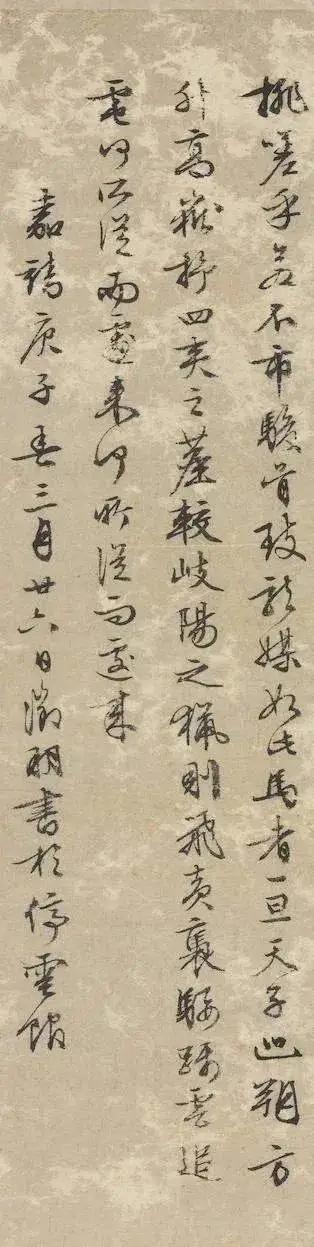 桃嗟乎若不市駿骨致龍媒如此馬者一旦天子巡朔方
升高嶽掃四夷之塵較岐陽之獵則飛黃褭騕躡雲追
電何所從而遽來何所從而遽來
嘉靖庚子春三月廿六日徵明書於停雲館